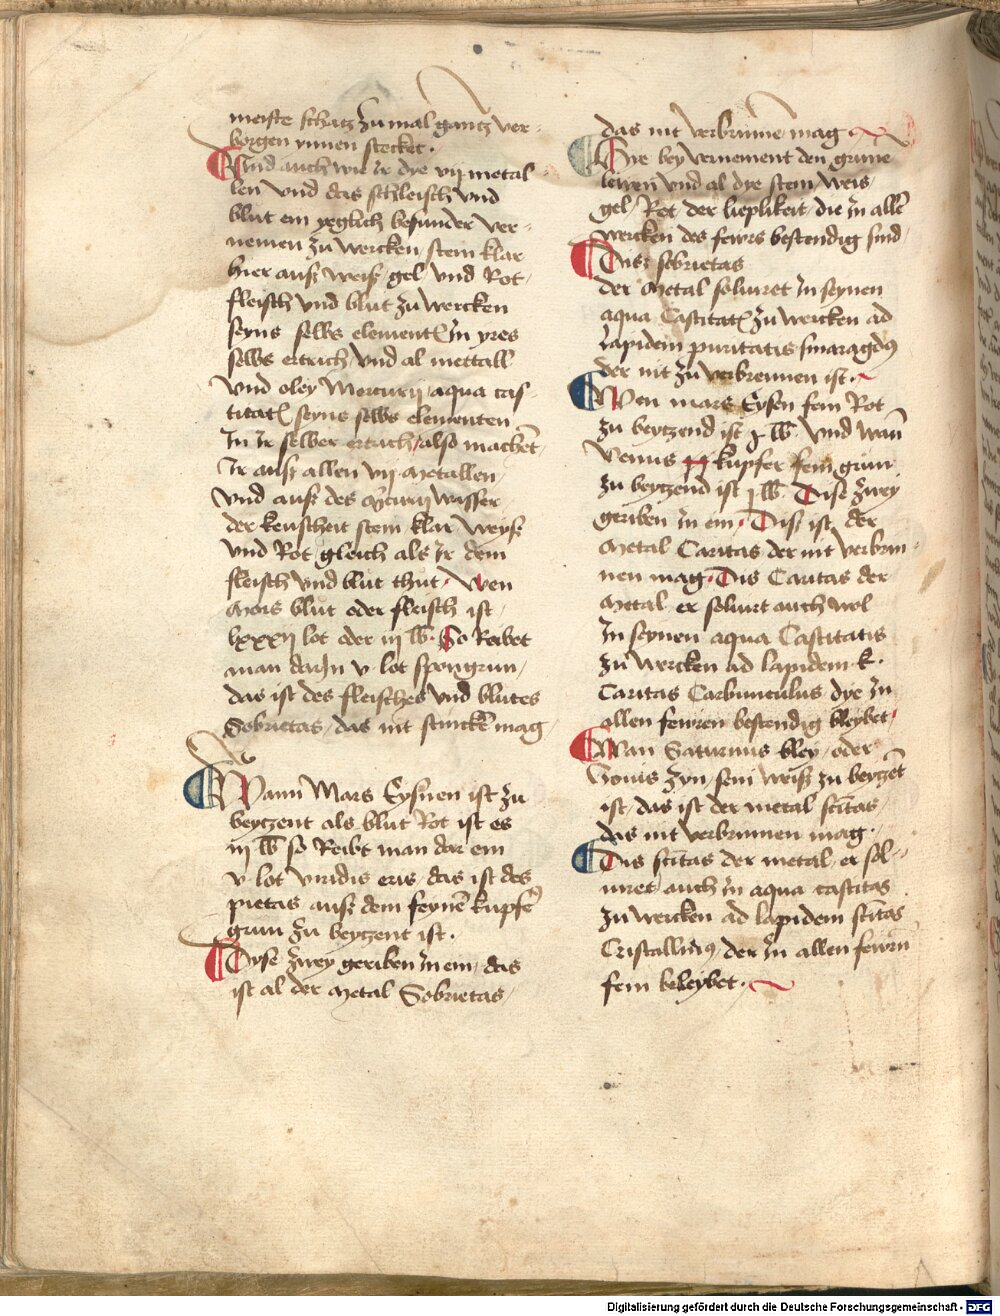 meiste schatz zu mal gantz ver-
borgen ynnen stecket.
Und auch wie ir dye vii metal-
len und das fleisch und
blut ein yeglich besunder ver-
nemen zu wercken stein klar
hier auß weiß gel und Rot
fleisch und blut zu wercken
seyns selbs element in yres
selbs ertrich und al mettall
und oley Mercurii aqua cas-
titat seyns selbs elementen
In ir selber ertrich also machet
Ir auß allen vii Metallen
und auß des Mercurii wasser
der keuscheit stein klar weyß
und Rot gleich als ir dem
fleisch und blut thut. Wen
Mois blut oder fleisch ist
lxxxii lot oder iii lb. So Reibet
man darin v lot spongrun
das ist des fleisches und blutes
Sobrietas das nit stincken mag
Wann Mars Eysnen ist zu
beytzent als blut Rot ist es
iii lb so Reibt man dar ein
v lot viridis eris das ist des
pietas auß dem feynen kupfer
grun zu beytzent ist.
Dyse zwey geriben in ein das
ist al der Metal Sobrietas
das nit verbrinne mag
Hye bey vernement den grune
lewen und al dye stein weis
gel Rot der lieplikeit die in allen
wercken des fewrs bestendig sind
Dise sobrietas
der Metal solviret in seynen
aqua Castitat zu wercken ad
lapidem puritatis smaragdus
der nit zu verbrennen ist.
Wen mars Eysen fein Rot
zu beytzend ist i lb. Und wan
Venus kupfer fein grun
zu beytzend ist i lb. Dise zwey
geriben in ein. Dis ist der
Metal Caritas der nit verbrin-
nen mag. Dis Caritas der
Metal er solvirt auch wol
In seynen aqua Castitatis
zu wercken ad lapidem k.
Caritas Carbunculus dye in
allen fewren bestendig bleybet
Wan Saturnus bley oder
Jovis zyn sein weiß zu beytzet
ist das ist der metal scitas
das nit verbrinnen mag.
Dis scitas der metal er sol-
viret auch in aqua castitas
zu wercken ad lapidem scitas
Cristallinus der in allen fewrn
fein beleybet.
Digitalisierung gefördert durch die Deutsche Forschungsgemeinschaft - DFG